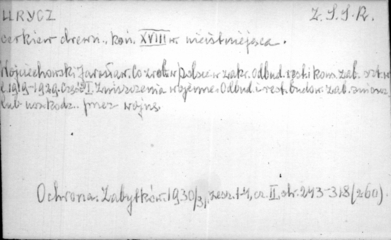 URYCZ Z.S.S.R.
cerkiew drewn., kon. XVIII w. nieistniejąca.
Wojciechowski Jarosław. Co zrobiono w Polsce w zakr. odbud. i restr. kom. zab. sztuki
1919-1929. Cz. II. Zniszczenia wojenne. Odbud. i rest. budow. zab. zniszcz.
lub uszkodz. przez wojnę
Ochrona Zabytków. 1930/31, zesz. 1-4, cz. II, str. 243-318 (260).